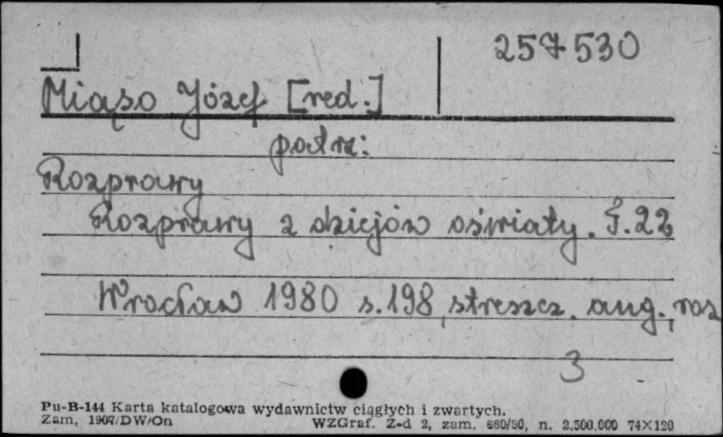 257530
Miąso Józef [red.]
patrz:
Rozprawy
Rozprawy z dziejów oświaty. T.22
Wrocław 1980 s.198, streszcz. ang., ros
3
Pu-B-144 Karta katalogowa wydawnictw ciągłych i zwartych.
Zam. 1907/DW/On WZGraf. Z-d 2, zam. 660/80, n. 2.500.000 74×120